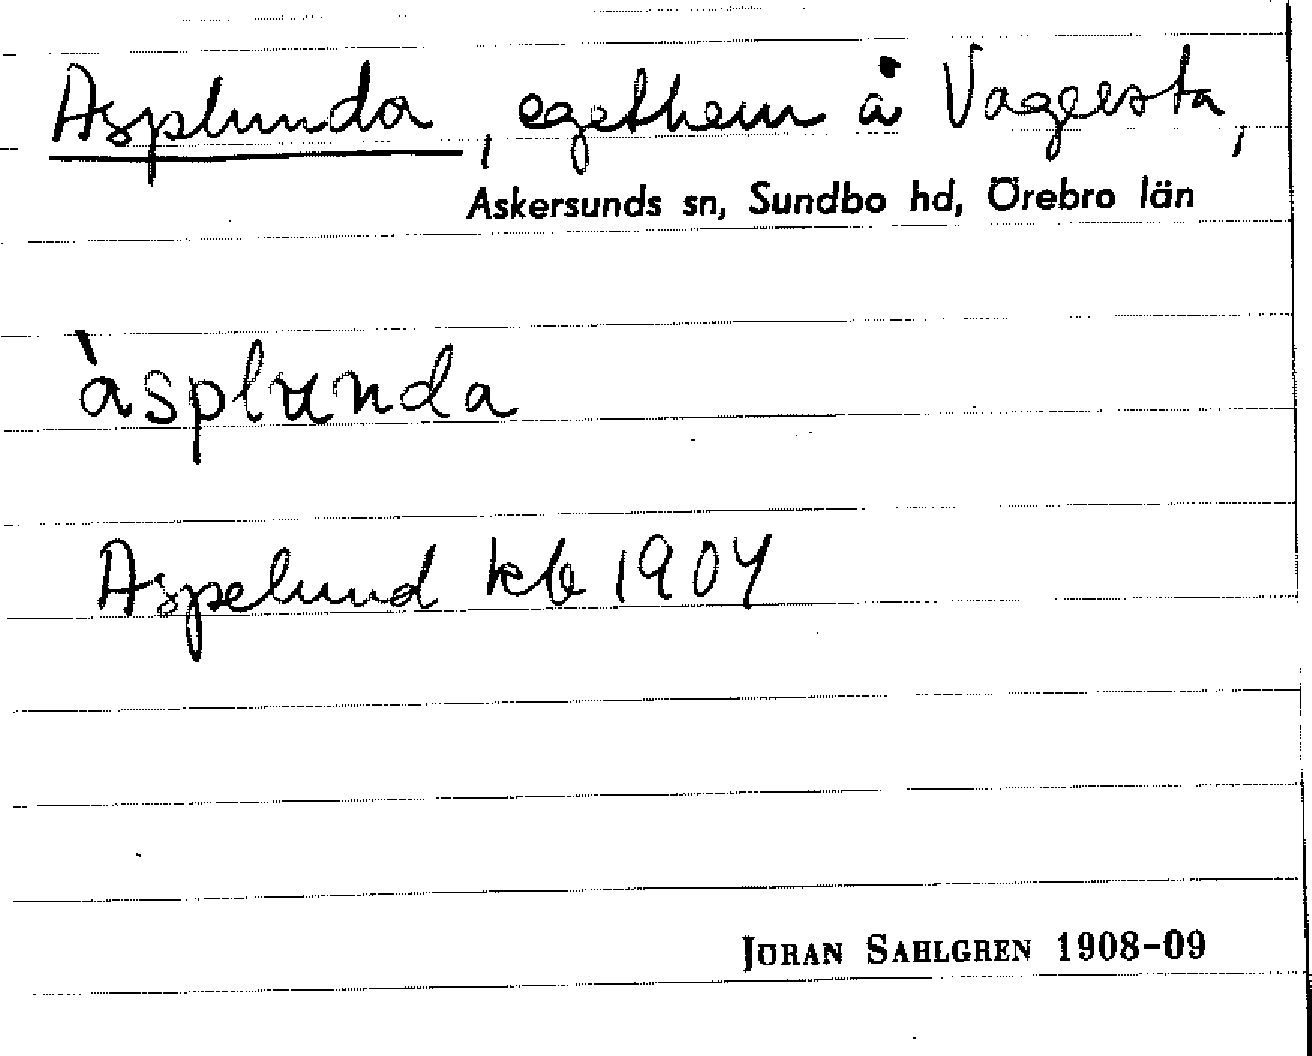 Asplunda, egethem å Vagersta,
Askersunds sn, Sundbo hd, Örebro län
àsplunda
Aspelund kb 1904
JÖRAN SAHLGREN 1908-09